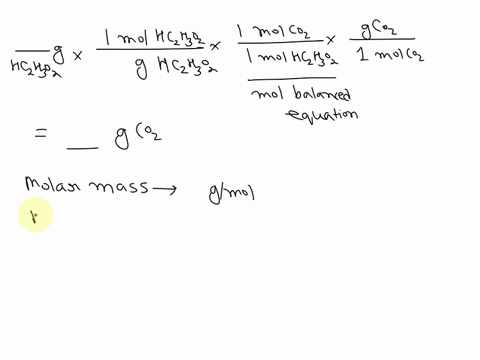 ___ g HC₂H₃O₂ × 1 mol HC₂H₃O₂ / g HC₂H₃O₂ × 1 mol CO₂ / 1 mol HC₂H₃O₂ × g CO₂ / 1 mol CO₂
mol balanced
equation
= __ g CO₂
Molar mass → g/mol